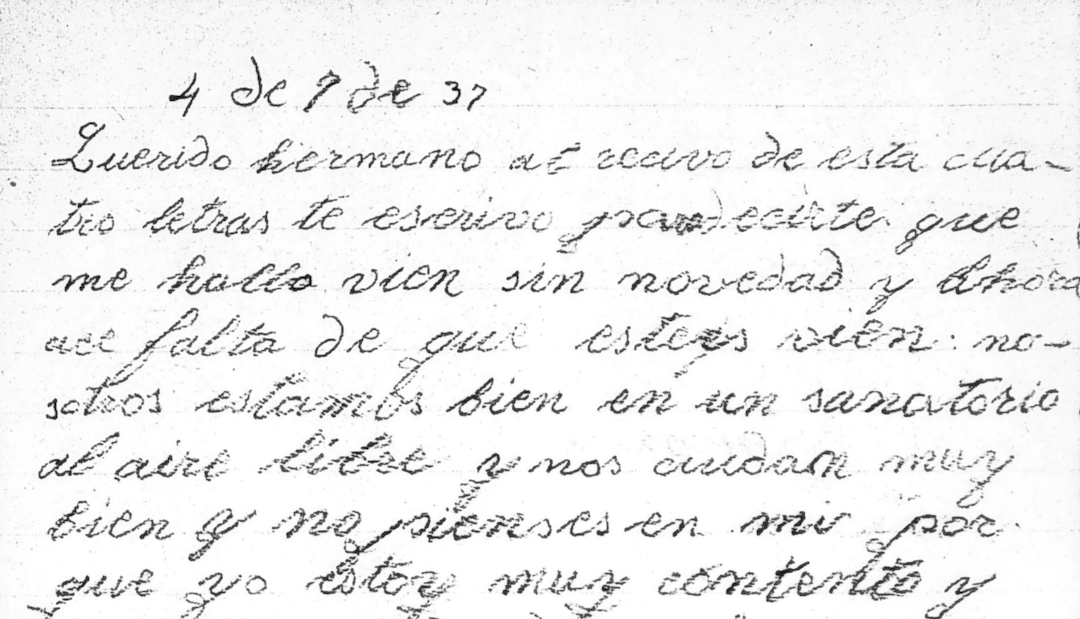 4 de 9 de 37
Querido hermano al recivo de esta cua-
tro letras te escrivo para decirte que
me hallo vien sin novedad y Ahora
ace falta de que esteys vien. no-
sotros estamos bien en un sanatorio
al aire libre y nos cuidan muy
bien y no pienses en mi por
que yo estoy muy contento y